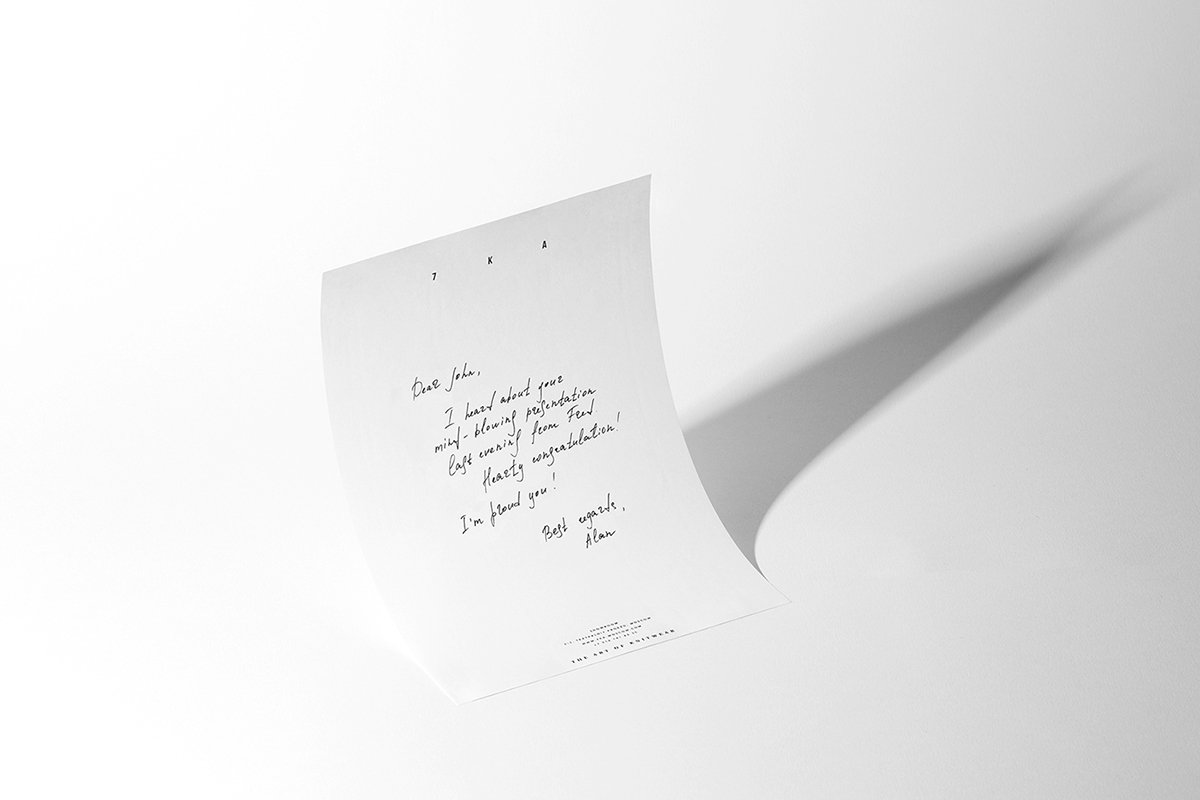 7 K A
Dear John,
I heard about your
mind-blowing presentation
last evening from Fred
Hearty congratulation!
I'm proud you!
Best regards,
Alan
SHOWROOM
MOSCOW
THE ART OF KNITWEAR